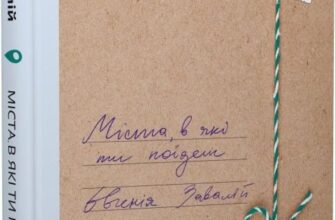 лій
МІСТА В ЯКІ ТИ
Міста, в які
ти поїдеш
Євгенія Завалій